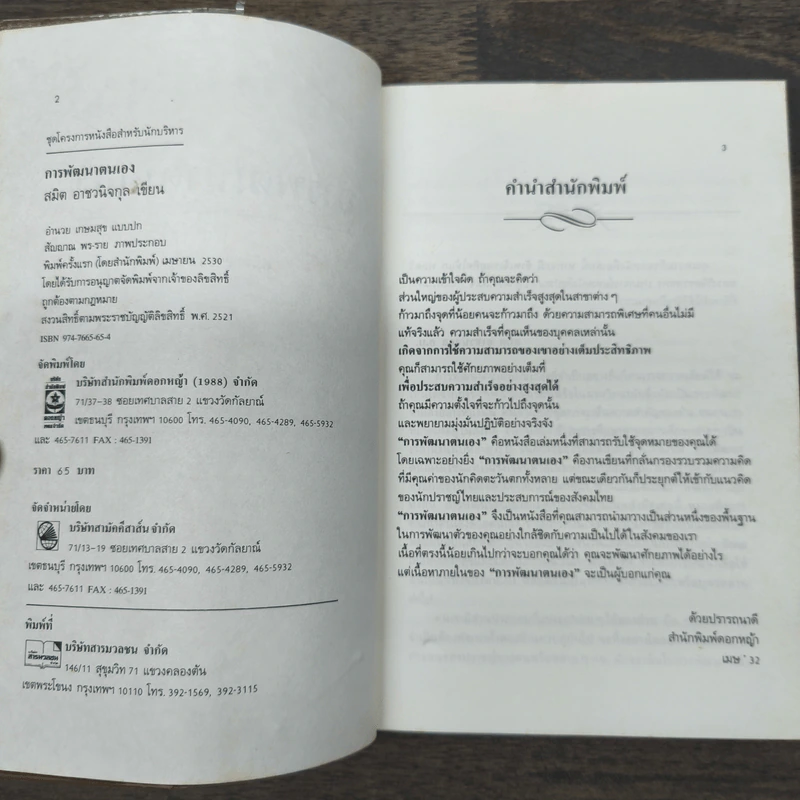 2
ชุดโครงการหนังสือสำหรับนักบริหาร
การพัฒนาตนเอง
สมิต อาชวนิจกุล เขียน
อำนวย เกษมสุข แบบปก
สัญญาณ พร-ราย ภาพประกอบ
พิมพ์ครั้งแรก (โดยสำนักพิมพ์) เมษายน 2530
โดยได้รับการอนุญาตจัดพิมพ์จากเจ้าของลิขสิทธิ์
ถูกต้องตามกฎหมาย
สงวนสิทธิ์ตามพระราชบัญญัติลิขสิทธิ์ พ.ศ. 2521
ISBN 974-7665-65-4
จัดพิมพ์โดย
บริษัทสำนักพิมพ์ดอกหญ้า (1988) จำกัด
71/37-38 ซอยเทศบาลสาย 2 แขวงวัดกัลยาณ์
เขตธนบุรี กรุงเทพฯ 10600 โทร. 465-4090, 465-4289, 465-5932
และ 465-7611 FAX : 465-1391
ราคา 65 บาท
จัดจำหน่ายโดย
บริษัทสามัคคีสาส์น จำกัด
71/13-19 ซอยเทศบาลสาย 2 แขวงวัดกัลยาณ์
เขตธนบุรี กรุงเทพฯ 10600 โทร. 465-4090, 465-4289, 465-5932
และ 465-7611 FAX : 465-1391
พิมพ์ที่
บริษัทสารมวลชน จำกัด
146/11 สุขุมวิท 71 แขวงคลองตัน
เขตพระโขนง กรุงเทพฯ 10110 โทร. 392-1569, 392-3115
3
คำนำสำนักพิมพ์
เป็นความเข้าใจผิด ถ้าคุณจะคิดว่า
ส่วนใหญ่ของผู้ประสบความสำเร็จสูงสุดในสาขาต่าง ๆ
ก้าวมาถึงจุดที่น้อยคนจะก้าวมาถึง ด้วยความสามารถพิเศษที่คนอื่นไม่มี
แท้จริงแล้ว ความสำเร็จที่คุณเห็นของบุคคลเหล่านั้น
เกิดจากการใช้ความสามารถของเขาอย่างเต็มประสิทธิภาพ
คุณก็สามารถใช้ศักยภาพอย่างเต็มที่
เพื่อประสบความสำเร็จอย่างสูงสุดได้
ถ้าคุณมีความตั้งใจที่จะก้าวไปถึงจุดนั้น
และพยายามมุ่งมั่นปฏิบัติอย่างจริงจัง
“การพัฒนาตนเอง” คือหนังสือเล่มหนึ่งที่สามารถรับใช้จุดหมายของคุณได้
โดยเฉพาะอย่างยิ่ง “การพัฒนาตนเอง” คืองานเขียนที่กลั่นกรองรวบรวมความคิด
ที่มีคุณค่าของนักคิดตะวันตกทั้งหลาย แต่ขณะเดียวกันก็ประยุกต์ให้เข้ากับแนวคิด
ของนักปราชญ์ไทยและประสบการณ์ของสังคมไทย
“การพัฒนาตนเอง” จึงเป็นหนังสือที่คุณสามารถนำมาวางเป็นส่วนหนึ่งของพื้นฐาน
ในการพัฒนาตัวของคุณอย่างใกล้ชิดกับความเป็นไปได้ในสังคมของเรา
เนื้อที่ตรงนี้น้อยเกินไปกว่าจะบอกคุณได้ว่า คุณจะพัฒนาศักยภาพได้อย่างไร
แต่เนื้อหาภายในของ “การพัฒนาตนเอง” จะเป็นผู้บอกแก่คุณ
ด้วยปรารถนาดี
สำนักพิมพ์ดอกหญ้า
เมษ ' 32